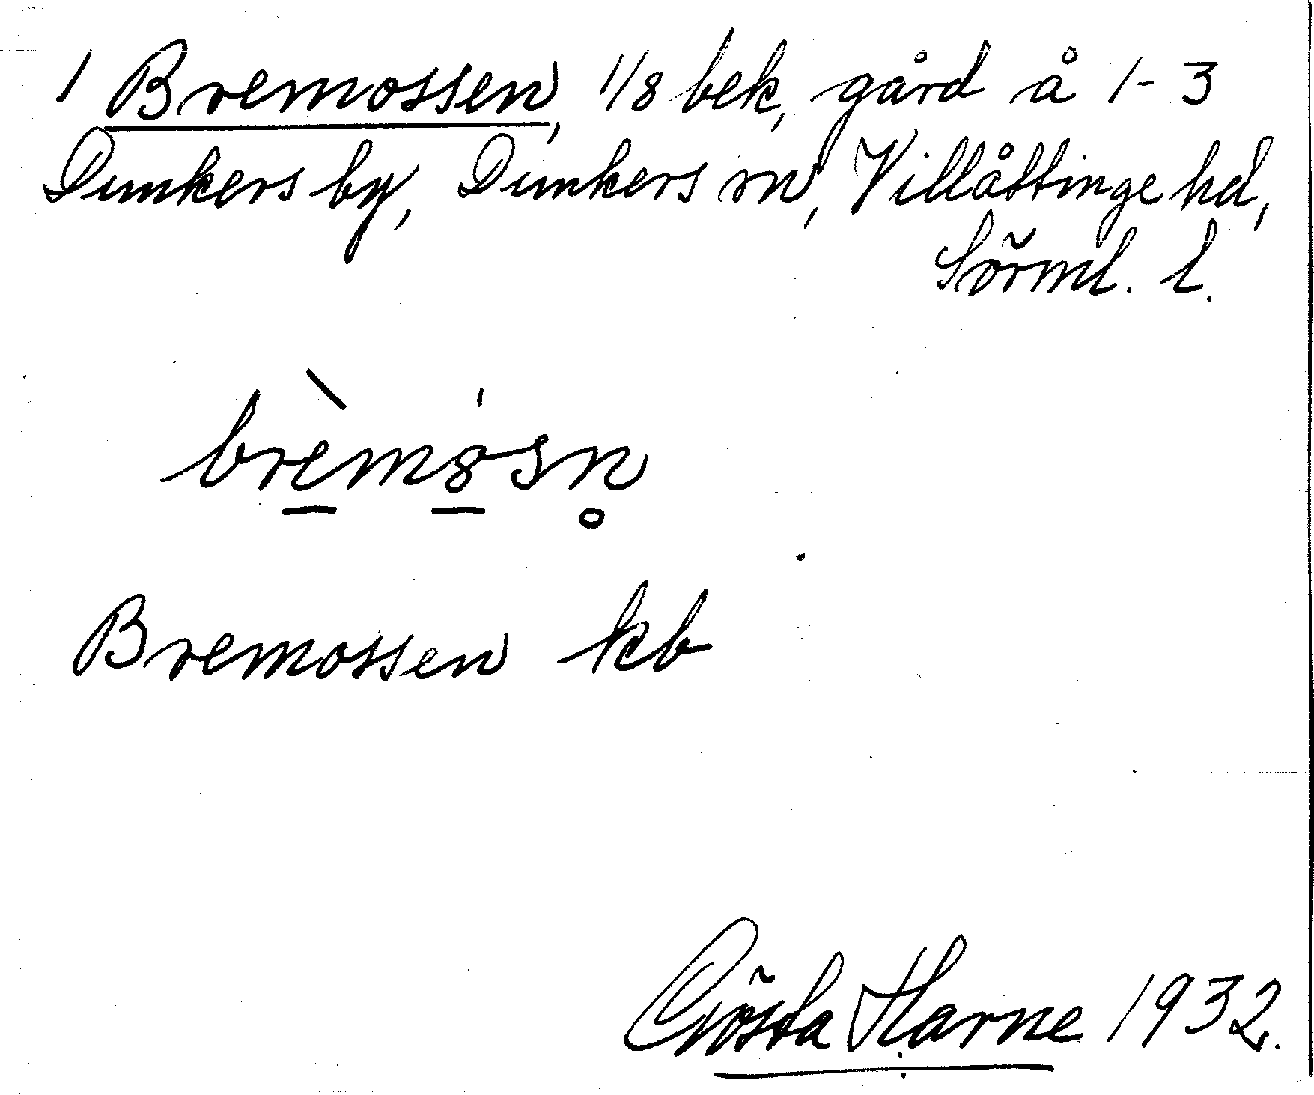 1 Bremossen, 1/8 bek, gård å 1-3
Dunkers by, Dunkers sn, Villåttinge hd,
Sörml. l.
brèm8sn̥
Bremossen kb
Gösta Harne 1932.